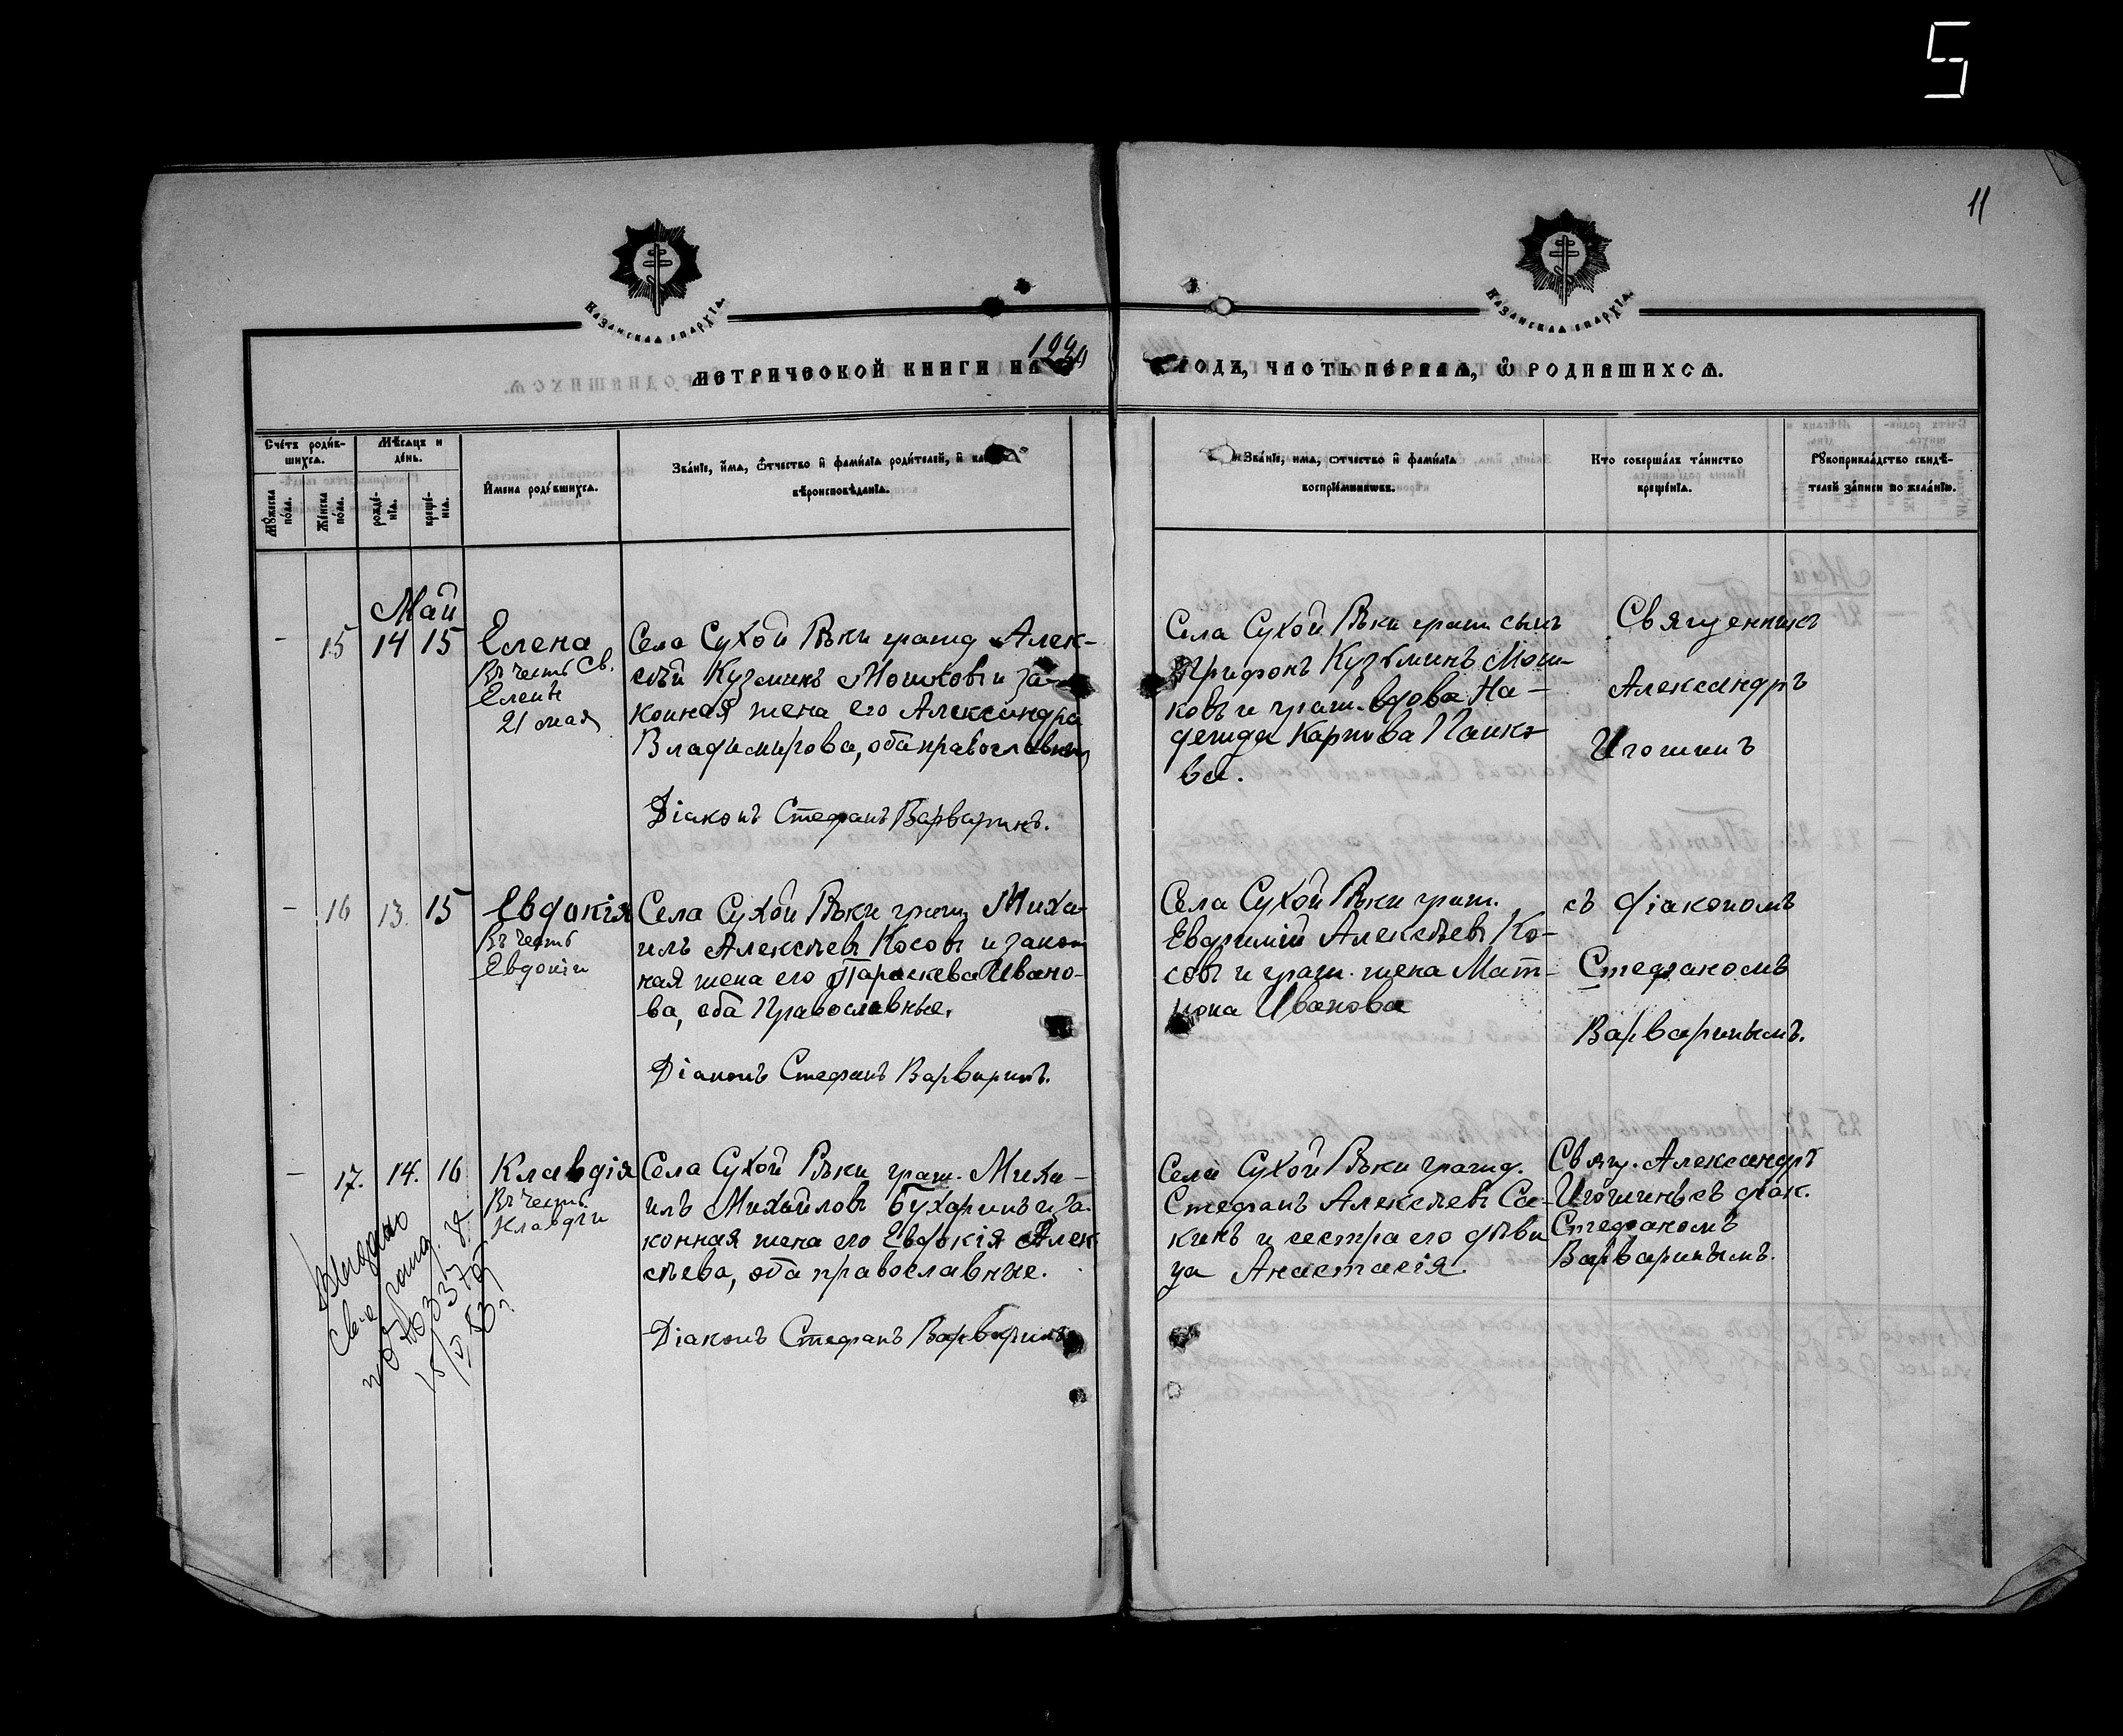 5
11
КАЗАНСКАА ЕПАРХІА.
КАЗАНСКАА ЕПАРХІА.
МЕТРИЧЕСКОЙ КНИГИ НА
ГОДЪ, ЧАСТЬ ПЕРВАЯ, Ѽ РОДИВШИХСѦ.
Счетъ родив-
шихсѧ.
Мѣсяцъ и
день.
Мꙋжеска
пола.
Женска
пола.
рожде-
нїѧ.
креще-
нїѧ.
Имена родившихсѧ.
Званїе, имѧ, ѿчество и фамилїѧ родителей, и
вѣроисповѣданїѧ.
Званїе, имѧ, ѿчество и фамилїѧ
воспрїемниковъ.
Кто совершалъ таинство
крещенїѧ.
Рꙋкоприкладство свидѣ-
телей записи по желанїю.
Май
- 15 14 15
Елена
Въ честь Св.
Елены
21 мая
Села Сухой Рѣки гражд Алек-
сѣй Кузминъ Мошковъ и за-
конная жена его Александра
Владимирова, оба православные
Діаконъ Стефанъ Варваринъ.
Села Сухой Рѣки граж. сынъ
Трифонъ Кузьминъ Мош-
ковъ и граж. вдова На-
дежда Карпова Панко-
ва.
Священникъ
Александръ
Игошинъ
- 16 13. 15
Евдокія
Въ честь
Евдокіи
Села Сухой Рѣки граж. Миха-
илъ Алексѣевъ Косовъ и закон
ная жена его Параскева Ивано-
ва, оба Православные.
Діаконъ Стефанъ Варваринъ.
Села Сухой Рѣки граж.
Евфимій Алексѣевъ Ко-
совъ и граж. жена Мат-
рона Иванова
съ діакономъ
Стефаномъ
Варваринымъ.
- 17. 14. 16
Клавдія
Въ честь
Клавдіи
Села Сухой Рѣки граж. Миха-
илъ Михайловъ Бухаринъ и за-
конная жена его Евдокія Алек
сѣева, оба православные.
Діаконъ Стефанъ Варваринъ
Села Сухой Рѣки гражд.
Стефанъ Алексѣевъ Са-
кинъ и сестра его дѣви
ца Анастасія.
Свящ. Александръ
Игошинъ съ діак.
Стефаномъ
Варваринымъ.
Выдано